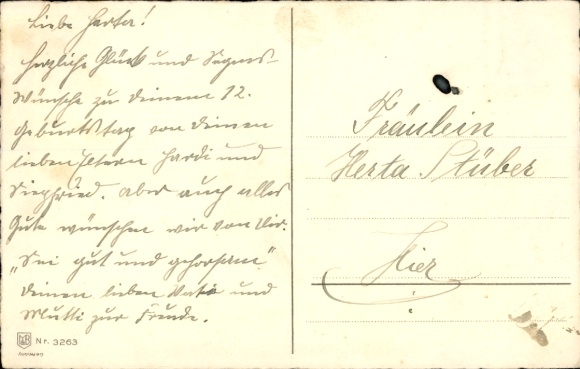 Liebe Herta!
Herzliche Glück und Segens-
Wünsche zu Deinem 12.
Geburtstag von Deinen
lieben Eltern Hardi und
Siegfried. Aber auch alles
Gute wünschen wir von Dir.
„Sei gut und gehorsam"
Deinen lieben Vati und
Mutti zur Freude.
Nr. 3263
Fräulein
Herta Stüber
Hier